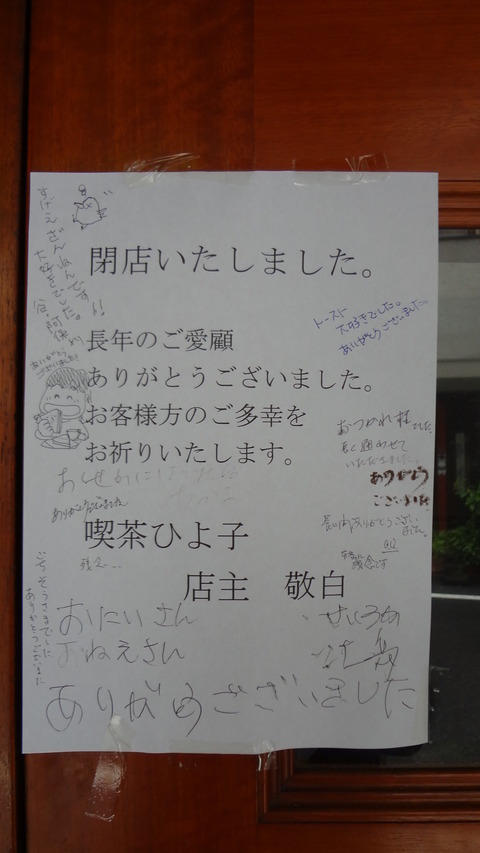 閉店いたしました。
長年のご愛顧
ありがとうございました。
お客様方のご多幸を
お祈りいたします。
喫茶ひよ子
店主　敬白
すげえざんねんです
大好きでした。!!
ありがとう
ございました!
トースト
大好きでした。
ありがとうございました。
おつかれ様でした。
長く
いただきました。
ありがとう
ございました
長い間ありがとうござい
ました。
残念です
おせわになりました
ありがとうございました
残念…
ごちそうさまでした
ありがとうございました
おにいさん
おねえさん
ありがとうございました